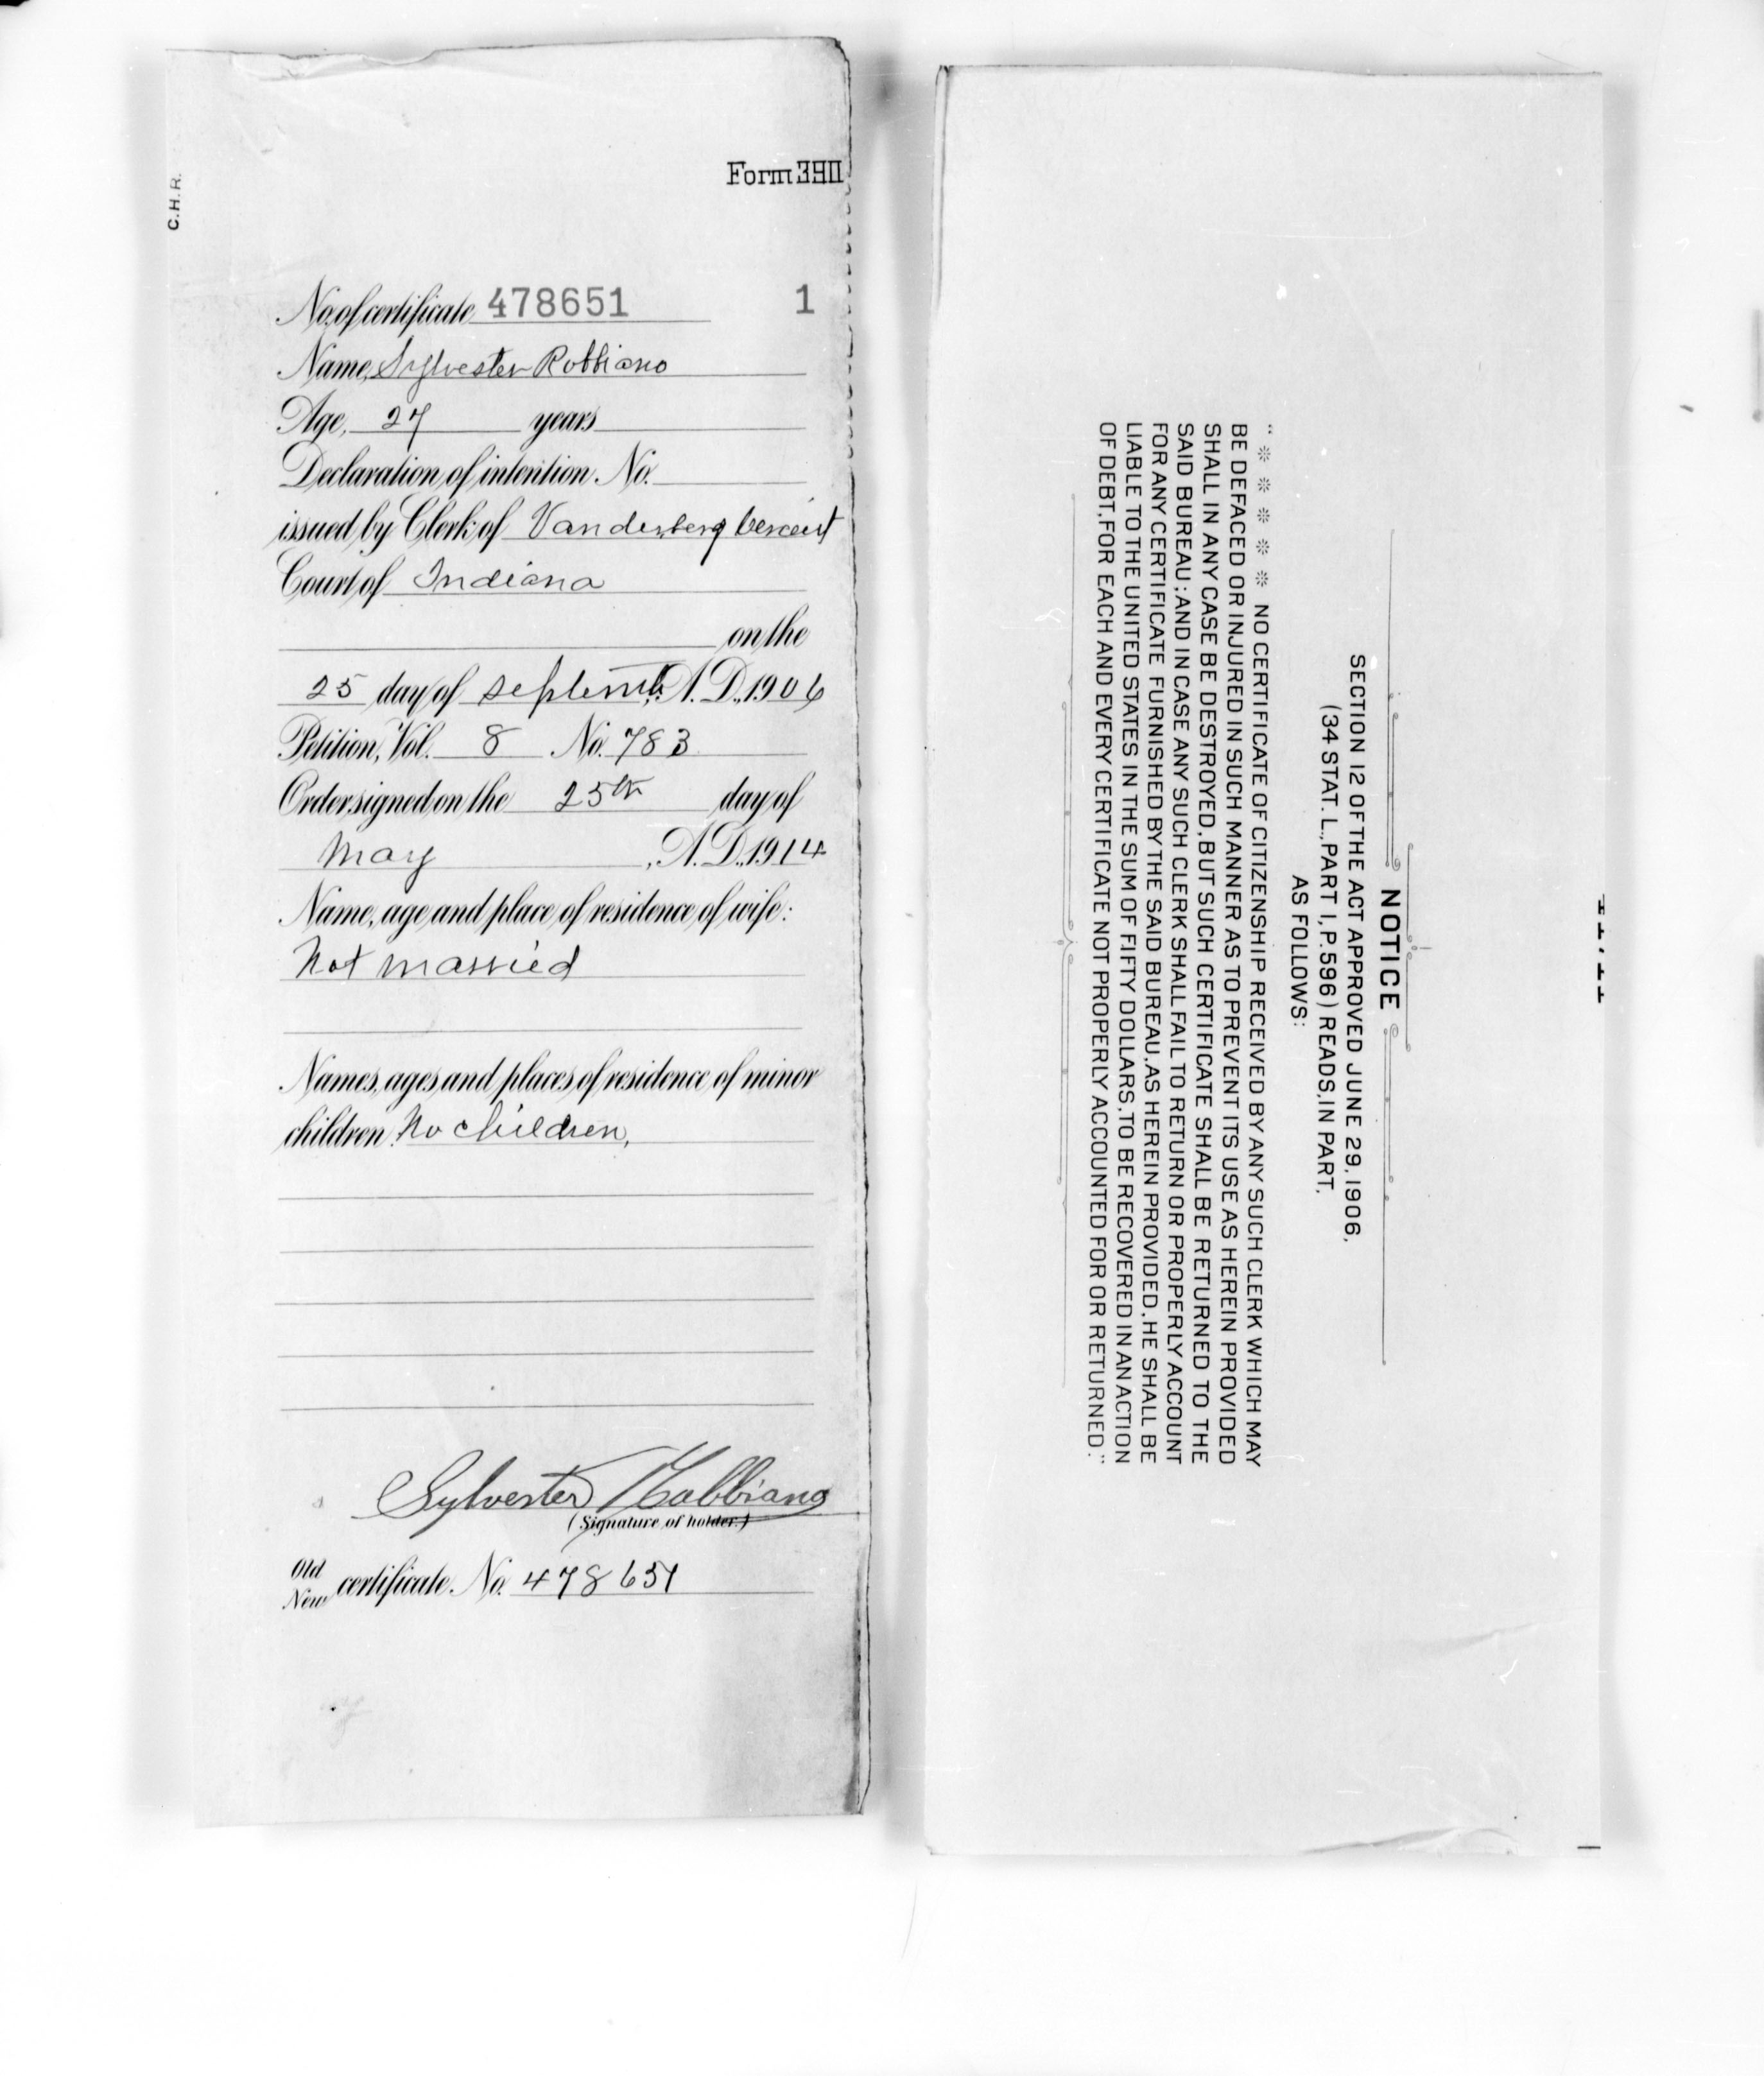 C.H.R.
Form 390
No. of certificate 478651 1
Name, Sylvester Robbiano
Age, 27 years
Declaration of intention No.
issued by Clerk of Vanderberg
Court of Indiana
on the
25 day of Septemb. A.D., 1906
Petition, Vol. 8 No. 783
Order signed on the 25th day of
May, A.D., 1914
Name, age and place of residence of wife:
Not married
Names, ages and places of residence of minor
children. No children,
Sylvester Robbiano
(Signature of holder.)
Old
New certificate No. 478651
NOTICE
SECTION 12 OF THE ACT APPROVED JUNE 29, 1906,
(34 STAT. L., PART 1, P. 596) READS, IN PART,
AS FOLLOWS:
" * * * * * NO CERTIFICATE OF CITIZENSHIP RECEIVED BY ANY SUCH CLERK WHICH MAY
BE DEFACED OR INJURED IN SUCH MANNER AS TO PREVENT ITS USE AS HEREIN PROVIDED
SHALL IN ANY CASE BE DESTROYED, BUT SUCH CERTIFICATE SHALL BE RETURNED TO THE
SAID BUREAU; AND IN CASE ANY SUCH CLERK SHALL FAIL TO RETURN OR PROPERLY ACCOUNT
FOR ANY CERTIFICATE FURNISHED BY THE SAID BUREAU, AS HEREIN PROVIDED, HE SHALL BE
LIABLE TO THE UNITED STATES IN THE SUM OF FIFTY DOLLARS, TO BE RECOVERED IN AN ACTION
OF DEBT, FOR EACH AND EVERY CERTIFICATE NOT PROPERLY ACCOUNTED FOR OR RETURNED."